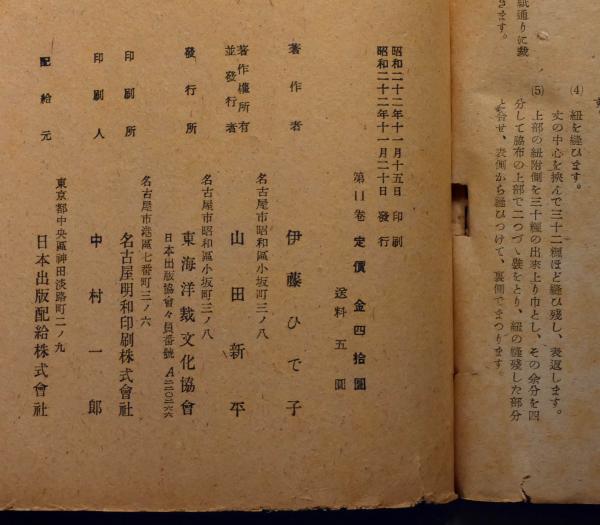 紙通りに裁
きます。
(4) 紐を縫ひます。
丈の中心を挾んで三十二糎ほど縫ひ残し、表返します。
(5) 上部の紐附側を三十糎の出来上り巾とし、その余分を四
分して脇布の上部で二つづゝ襞をとり、紐の縫残した部分
と合せ、表側から縫ひつけて、裏側でまつります。
昭和二十二年十一月十五日 印刷
昭和二十二年十一月二十日 發行
第二卷 定價 金四拾圓
送料 五圓
著作者 伊藤ひで子
名古屋市昭和區小坂町三ノ八
著作權所有
並發行者 山田新平
名古屋市昭和區小坂町三ノ八
發行所 東海洋裁文化協會
日本出版協會々員番號 A二二〇二六六
名古屋市港區七番町三ノ六
印刷所 名古屋明和印刷株式會社
印刷人 中村一郎
東京都中央區神田淡路町二ノ九
配給元 日本出版配給株式會社